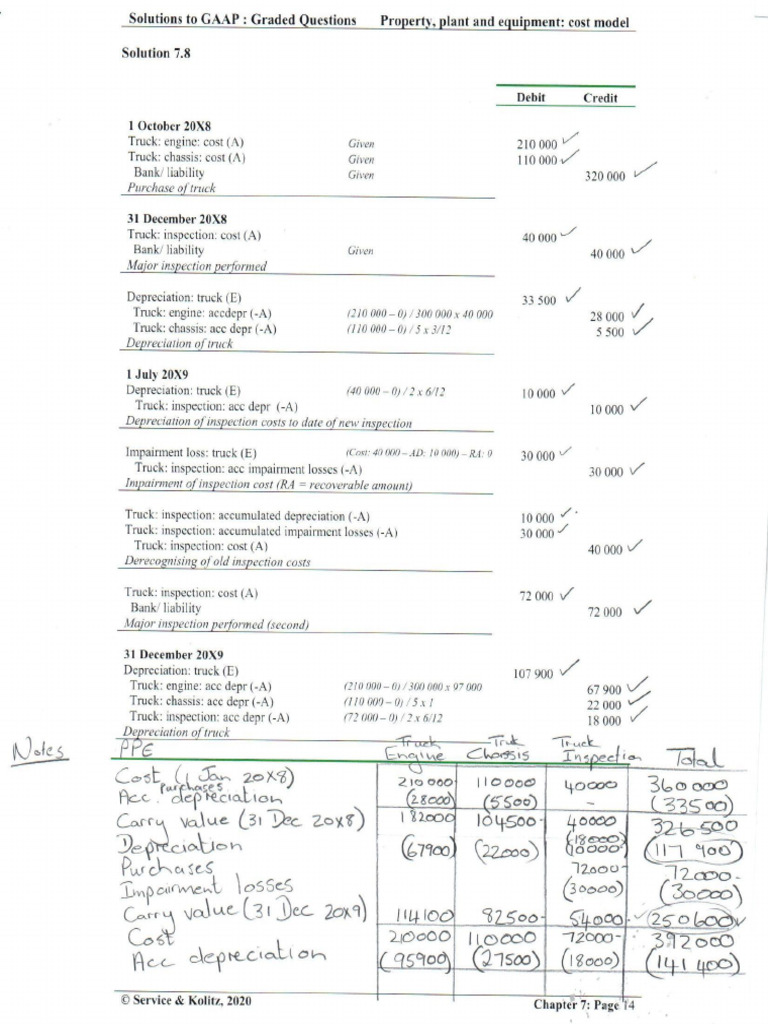 Solutions to GAAP : Graded Questions Property, plant and equipment: cost model
Solution 7.8
Debit Credit
1 October 20X8
Truck: engine: cost (A) Given 210 000
Truck: chassis: cost (A) Given 110 000
Bank/ liability Given 320 000
Purchase of truck
31 December 20X8
Truck: inspection: cost (A) 40 000
Bank/ liability Given 40 000
Major inspection performed
Depreciation: truck (E) 33 500
Truck: engine: accdepr (-A) (210 000 – 0) / 300 000 x 40 000 28 000
Truck: chassis: acc depr (-A) (110 000 – 0) / 5 x 3/12 5 500
Depreciation of truck
1 July 20X9
Depreciation: truck (E) (40 000 – 0) / 2 x 6/12 10 000
Truck: inspection: acc depr (-A) 10 000
Depreciation of inspection costs to date of new inspection
Impairment loss: truck (E) (Cost: 40 000 – AD: 10 000) – RA: 0 30 000
Truck: inspection: acc impairment losses (-A) 30 000
Impairment of inspection cost (RA = recoverable amount)
Truck: inspection: accumulated depreciation (-A) 10 000
Truck: inspection: accumulated impairment losses (-A) 30 000
Truck: inspection: cost (A) 40 000
Derecognising of old inspection costs
Truck: inspection: cost (A) 72 000
Bank/ liability 72 000
Major inspection performed (second)
31 December 20X9
Depreciation: truck (E) 107 900
Truck: engine: acc depr (-A) (210 000 – 0) / 300 000 x 97 000 67 900
Truck: chassis: acc depr (-A) (110 000 – 0) / 5 x 1 22 000
Truck: inspection: acc depr (-A) (72 000 – 0) / 2 x 6/12 18 000
Depreciation of truck
Notes PPE Truck Engine Truk Chassis Truck Inspection Total
Cost (1 Jan 20X8) 210000 110000 40000 360000
Purchases
Acc. depreciation (28000) (5500) - (33500)
Carry value (31 Dec 20X8) 182000 104500- 40000 326500
Depreciation (67900) (22000) (18000) (10000) (117 900)
Purchases 72000- 72000-
Impairment losses (30000) (30000)
Carry value (31 Dec 20X9) 114100 82500- 54000- (250600)
Cost 210000 110000 72000- 392000
Acc depreciation (95900) (27500) (18000) (141 400)
© Service & Kolitz, 2020 Chapter 7: Page 14